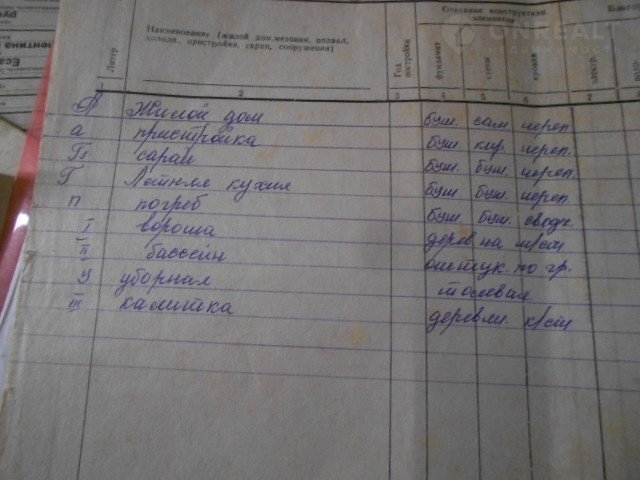 ONREALT
НЕДВИЖИМОСТЬ
Литер
Наименование (жилой дом, мезонин, подвал,
холодн. пристройки, сараи, сооружения)
Год постройки
Описание конструктивн.
элементов
фундамент
стены
кровля
электр.
1 2 3 4 5 6 7 8
А Жилой дом бут. сам. череп.
а пристройка бут. кир. череп.
сарай бут. бут. череп.
Г Летняя кухня бут. бут. череп.
п погреб бут. бут.
I ворота дерев на м/ст
II бассейн по гр.
У уборная толевая
III калитка